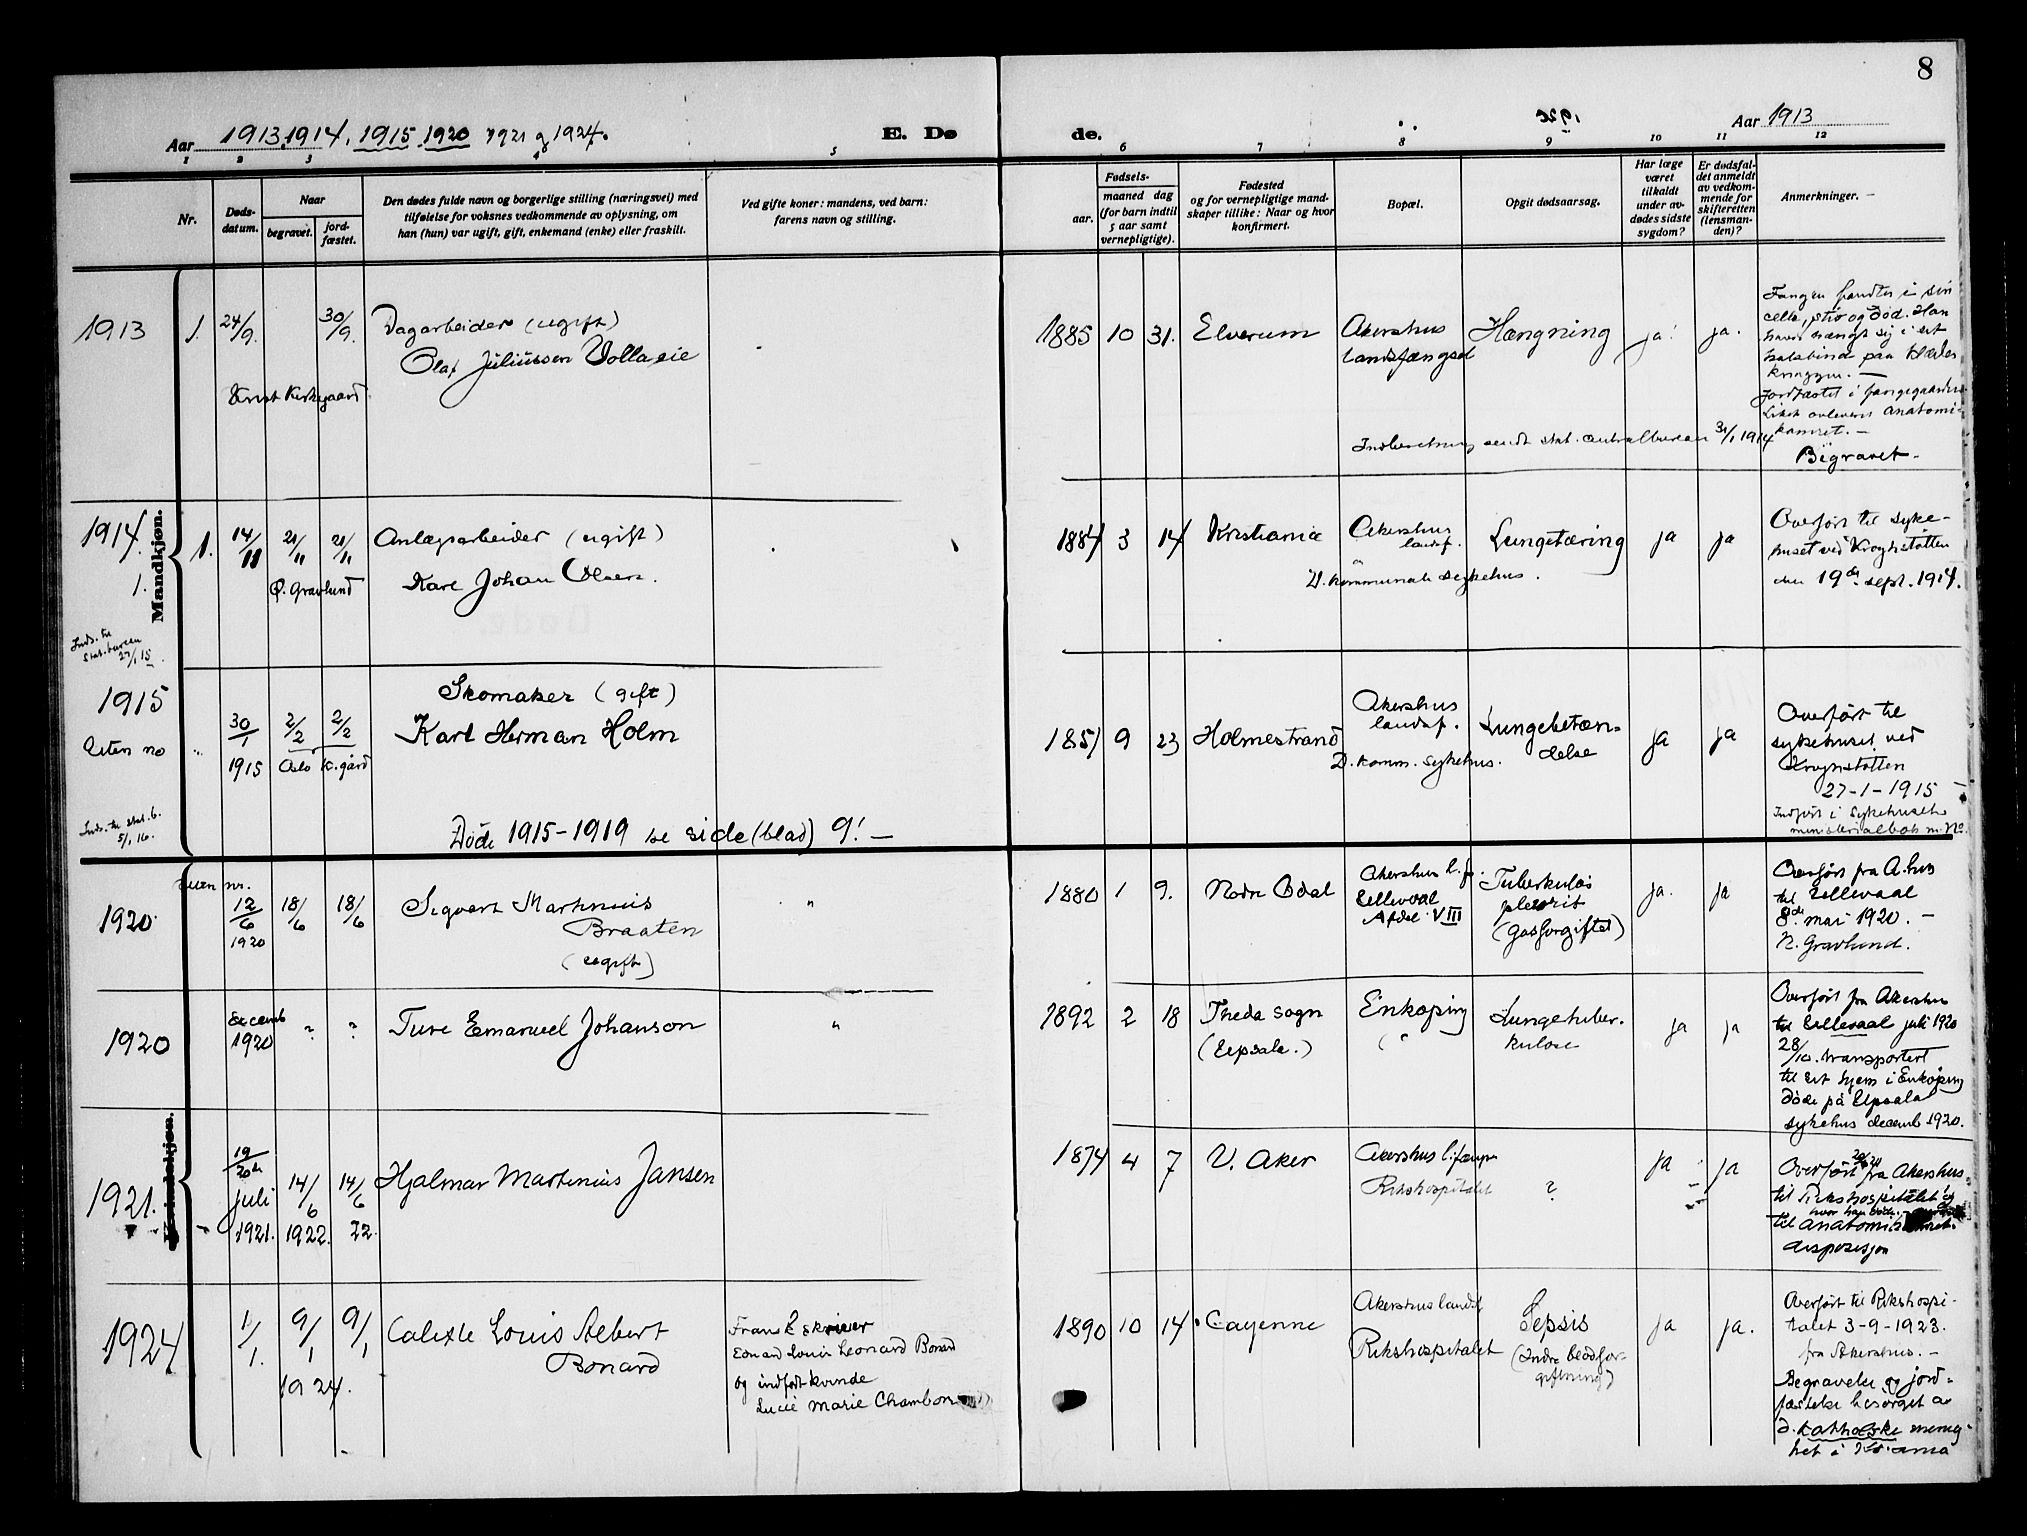 8
Aar 1913, 1914, 1915, 1920 1921 og 1924.
E. Dø
de.
Aar 1913
1 2 3 4 5 6 7 8 9 10 11 12
Nr.
Døds-
datum.
Naar
begravet.
jord-
fæstet.
Den dødes fulde navn og borgerlige stilling (næringsvei) med
tilføielse for voksnes vedkommende av oplysning, om
han (hun) var ugift, gift, enkemand (enke) eller fraskilt.
Ved gifte koner: mandens, ved barn:
farens navn og stilling.
Fødsels-
aar.
maaned dag
(for barn indtil
5 aar samt
vernepligtige).
Fødested
og for vernepligtige mand-
skaper tillike: Naar og hvor
konfirmert.
Bopæl.
Opgit dødsaarsag.
Har læge
været
tilkaldt
under av-
dødes sidste
sygdom?
Er dødsfal-
det anmeldt
av vedkom-
mende for
skifteretten
(lensman-
den)?
Anmerkninger.
Mandkjøn.
1913 1. 24/9. 30/9. Dagarbeider (ugift)
Olaf Juliussen Vollaeie
Krist Kirkegaard
1885 10 31. Elverum
Akershus
landsfængsel
Hængning
ja! ja.
Fangen fandtes i sin
celle, stiv og død. Han
havde hængt sig i et
halsbind paa klædes
knaggen. —
Jordfæstet i fangegaarden
Liket avleveret anatomi-
kamret. —
Begravet.
Indberetning sendt stat. centralbureau 31/1 1914
1914. 1. 14/11 21/11 21/11 Anlægsarbeider (ugift)
Karl Johan Olsen.
Ø. Gravlund
1.
1884 3 14 Kristiania
Akershus
landsf.
V. kommunale sykehus.
Lungetæring
ja ja
Overført til syke-
huset ved Krogstøtten
den 19de sept. 1914.
Inds. til
stat. bureau
27/1 15.
1915
Uten no
30/1 1915 2/2 2/2
Oslo k.gård
Skomaker (gift)
Karl Herman Holm
1851 9 23 Holmestrand
Akershus
landsf.
D. komm. sykehus.
Lungebetæn-
delse
ja ja
Overført til
sykehuset ved
Krogstøtten
27-1-1915
Indført i Sykehusets
ministerialbok m. No.
Inds. til stat. b.
5/1 16.
Døde 1915-1919 se side (blad) 9! —
uten nr.
1920. 12/6 1920 18/6 18/6 Sigvart Martinius
Braaten
(ugift)
"
1880 1 9. Nodre Odal
Akershus l.f.
Ullevaal
Afdel. VIII
Tuberkuløs
pleurit
(Gasforgiftet)
ja. ja
Overført fra A.hus
til Ullevaal
8de mai 1920. —
N. Gravlund.
1920 Decemb 1920 ? ? Ture Emanuel Johanson
"
1892 2 18 Theda sogn
(Upsala.)
Enkøping
Lungetuber-
kulose
ja ja
Overført fra Akershus
til Ullevaal juli 1920
28/10. transportert
til et hjem i Enkøping
døde på Upsala
sykehus decemb 1920.
Kvindekjøn.
1921. 19/20de juli 1921. 14/6 1922. 14/6 22. Hjalmar Martinius Jansen
1874 4 7 V. Aker
Akershus l.fængs
Rikshospitalet
?
ja ja
Overført 20/20 fra Akershus
til Rikshospitalet
hvor han døde.
til anatomi
disposisjon
1924 1/1. 9/1 9/1 1924. Calixte Louis Albert
Bonard
Fransk skriver
Eduard Louis Leonard Bonard
og indfødt kvinde
Lucie Marie Chambon
1890 10 14 Cayenne
Akershus landsf
Rikshospitalet
Sepsis
(Indre blodfor-
giftning)
ja ja.
Overført til Rikshospi-
talet 3-9-1923.
fra Akershus. —
Begravelse og jord-
fæstelse besørget av
d. katholske menig-
het i Kr.ania